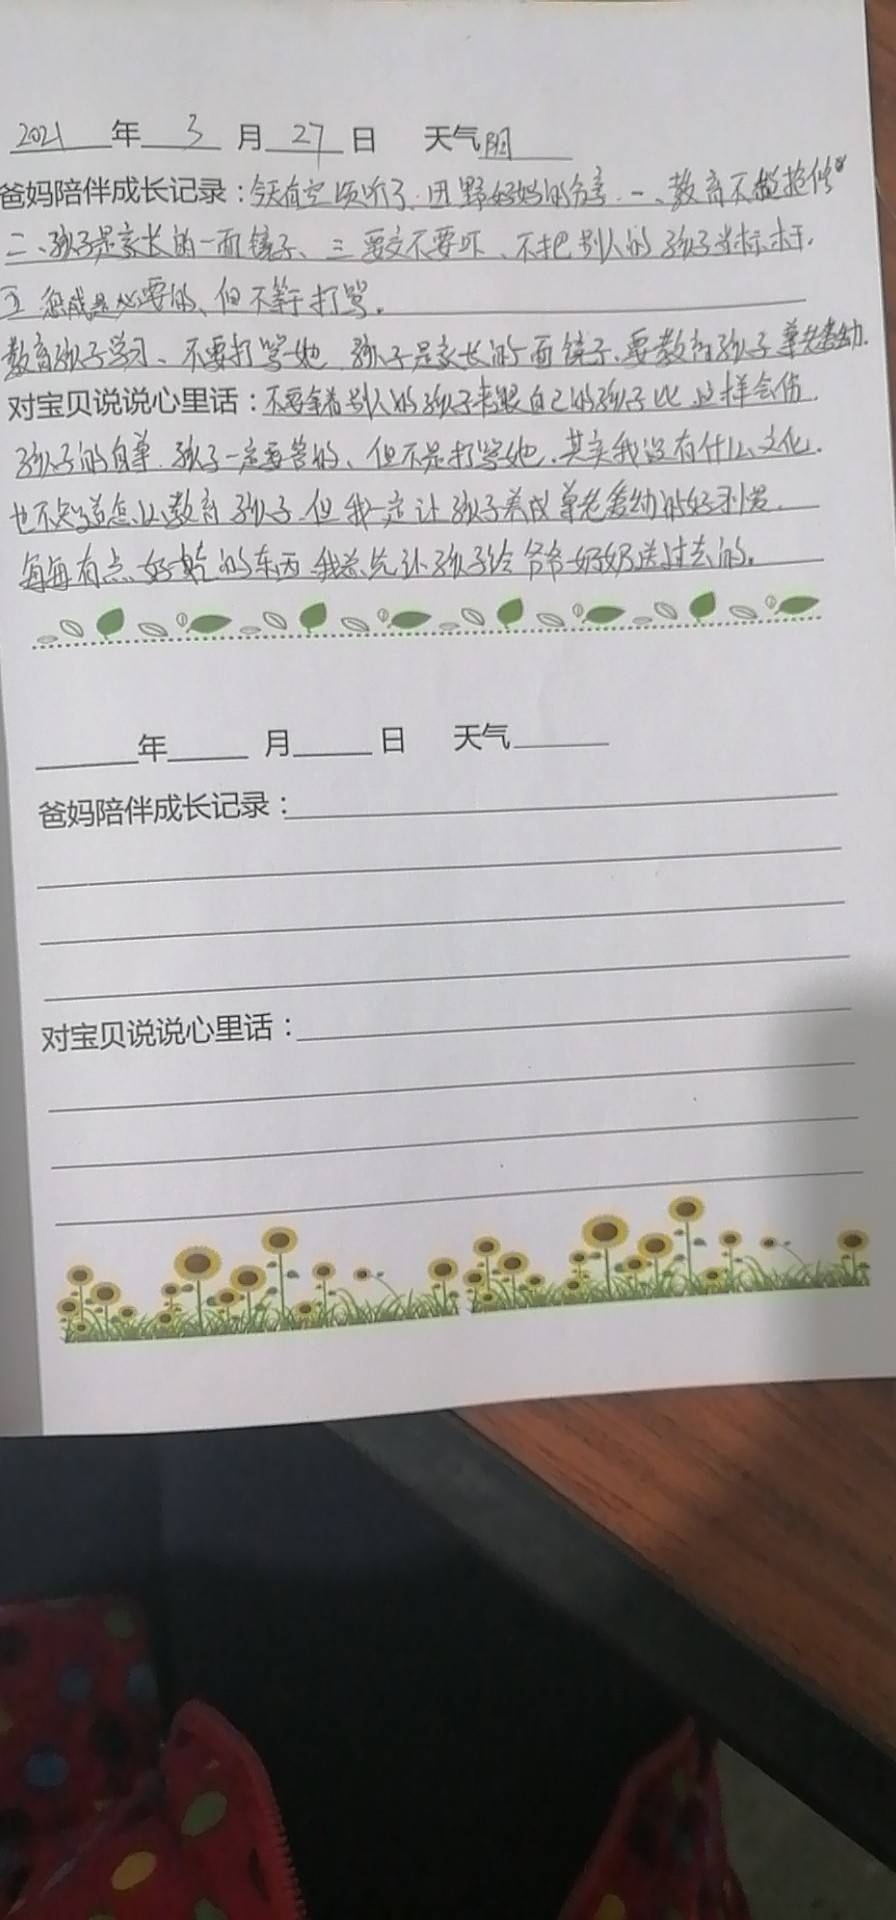 2021年3月27日 天气阴
爸妈陪伴成长记录:今天有空倾听了田野妈妈的分享.一、教育不
二、孩子是家长的一面镜子、三要文不要吓、不把别人的孩子当标杆.
五 惩戒是必要的、但不等于打骂.
教育孩子学习、不要打骂她 孩子是家长的一面镜子.要教育孩子尊老爱幼.
对宝贝说说心里话:不要拿着别人的孩子来跟自己的孩子比 这样会伤
孩子的自尊.孩子一定要管的、但不是打骂她.其实我没有什么文化.
也不知道怎么教育孩子.但我一定让孩子养成尊老爱幼的好习惯.
每每有点好吃的东西 我总先让孩子给爷爷奶奶送过去的.
年 月 日 天气
爸妈陪伴成长记录:
对宝贝说说心里话: